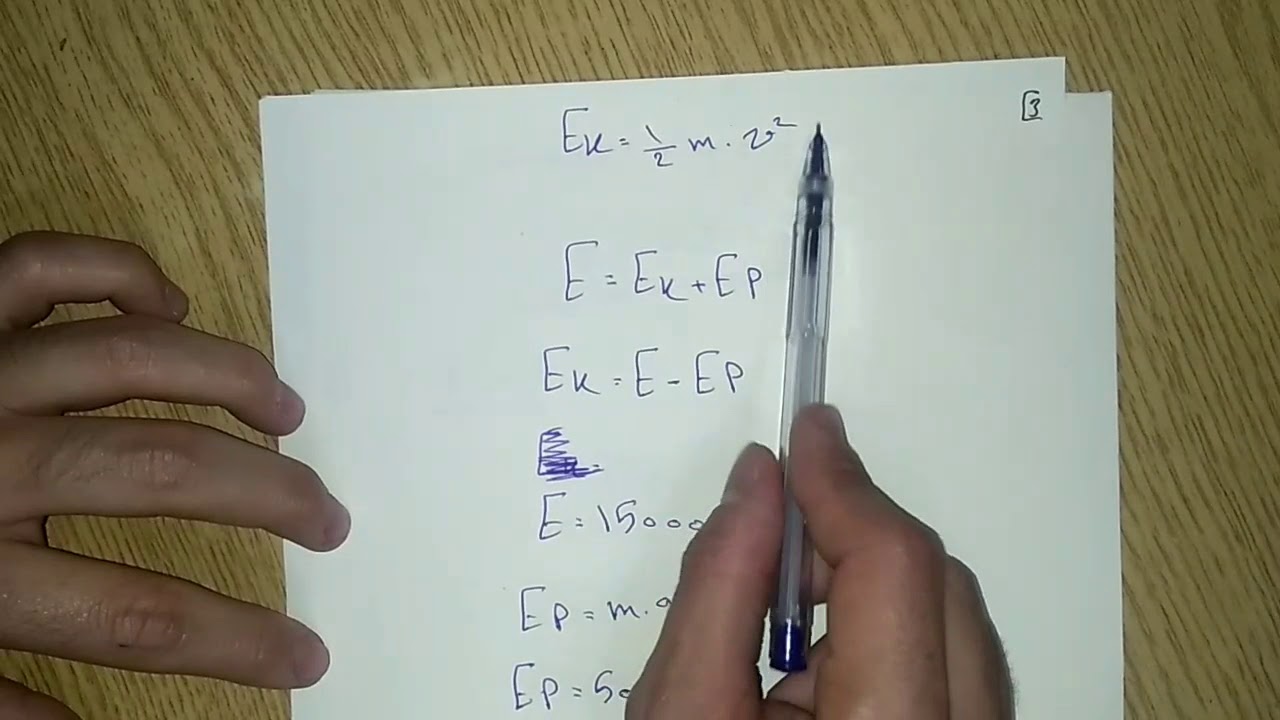 [3
Ek = 1/2 m · v²
E = Ek + Ep
Ek = E - Ep
E = 15000
Ep = m ·
Ep = 50